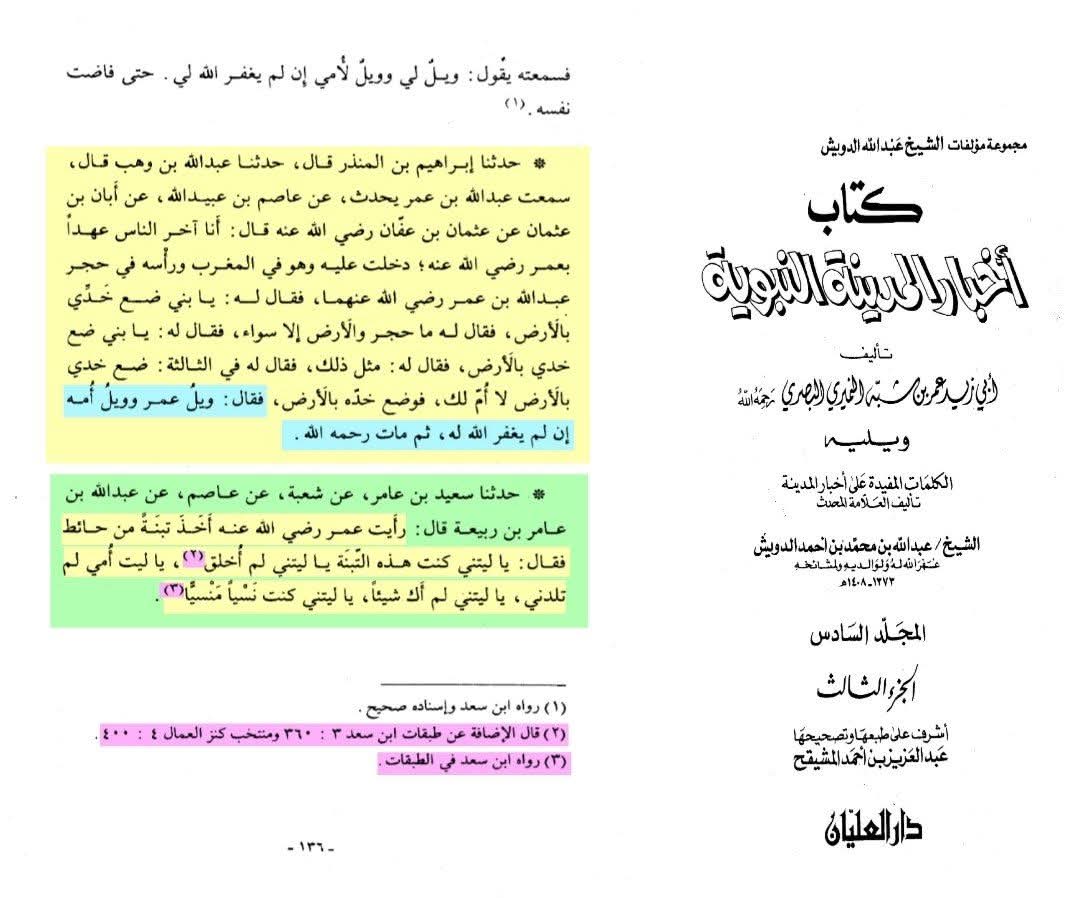 مجموعة مؤلفات الشيخ عبدالله الدويش
كتاب
أخبار المدينة النبوية
تأليف
أبي زيد عمر بن شبّة النميري البصري رحمه الله
ويليه
الكلمات المفيدة على أخبار المدينة
تأليف العلامة المحدث
الشيخ / عبدالله بن محمد بن أحمد الدويش
غفر الله له ولوالديه ولمشائخه
١٣٧٣ - ١٤٠٨هـ
المجلد السادس
الجزء الثالث
أشرف على طبعها وتصحيحها
عبدالعزيز بن أحمد المشيقح
دار العليان
فسمعته يقُول: ويـلٌ لي وويلٌ لأُمي إِن لم يغفـر الله لي. حتى فاضت
نفسه.(١)
* حدثنا إبـراهيم بن المنذر قـال، حدثنـا عبدالله بن وهب قـال،
سمعت عبدالله بن عمر يحدث، عن عاصم بن عبيدالله، عن أَبان بن
عثمان عن عثمان بن عفّان رضي الله عنه قال: أَنا آخـر الناس عهـداً
بعمـر رضي الله عنه؛ دخلت عليـه وهو في المغـرب ورأْسـه في حجـر
عبدالله بن عمـر رضي الله عنهـما، فقـال لـه: يـا بني ضـع خَـدِّي
بالأَرض، فقال لـه ما حجـر والأَرض إلا سواء، فقـال له: يـا بني ضع
خدي بالأَرض، فقال له: مثل ذلك، فقال له في الثـالثة: ضـع خدي
بالأَرض لا أُمّ لك، فوضع خدّه بالأَرض، فقال: ويلُ عمـر وويلُ أُمـه
إِن لم يغفـر الله له، ثـم مات رحمه الله.
* حدثنـا سعيـد بن عامـر، عن شعبـة، عن عـاصم، عن عبـدالله بن
عـامر بن ربيعـة قال: رأَيت عمـر رضي الله عنـه أَخَـذَ تبنَـةً من حـائط
فقـال: يا ليتني كنت هـذه التّبنَة يـا ليتني لم أُخلق(٢)، يا ليت أُمي لم
تلدني، يا ليتني لم أَك شيئاً، يا ليتني كنت نَسْياً مَنْسيًّا(٣).
(١) رواه ابن سعد وإسناده صحيح.
(٢) قال الإضافة عن طبقات ابن سعد ٣ : ٣٦٠ ومنتخب كنز العمال ٤ : ٤٠٠.
(٣) رواه ابن سعد في الطبقات.
- ١٣٦ -